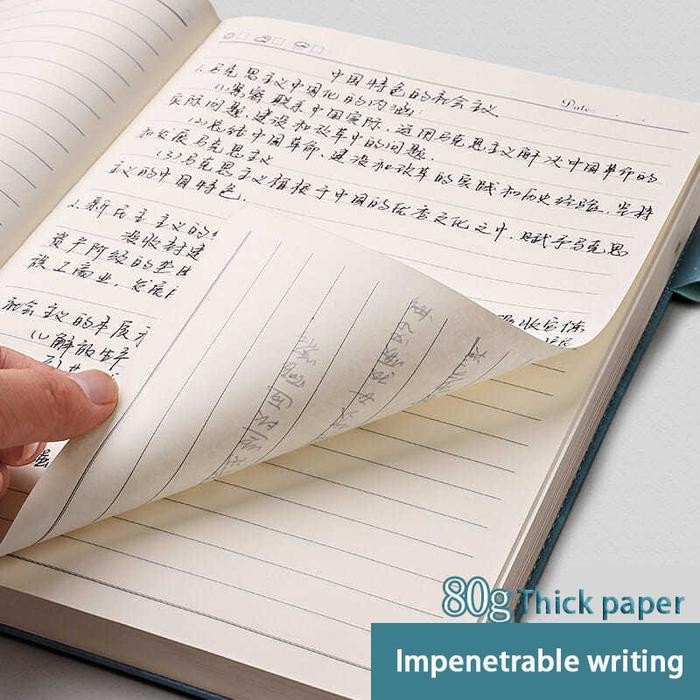 Date:
中国特色的社会主义
1.马克思主义中国化的内涵:
(1)紧密联系中国实际,运用马克思主义解决中国革命的
实际问题,建设和改革中的问题.
(2)总结中国革命,建设和改革的实践和历史经验,坚持
和发展马克思主义
(3)马克思主义植根于中国的优秀文化之中,赋予马克思
主义的中国特色.
2.新民主主义的
没收封建
资产阶级的垄断
族工商业,发展
社会主义的本质
(1)解放生产
80g Thick paper
Impenetrable writing